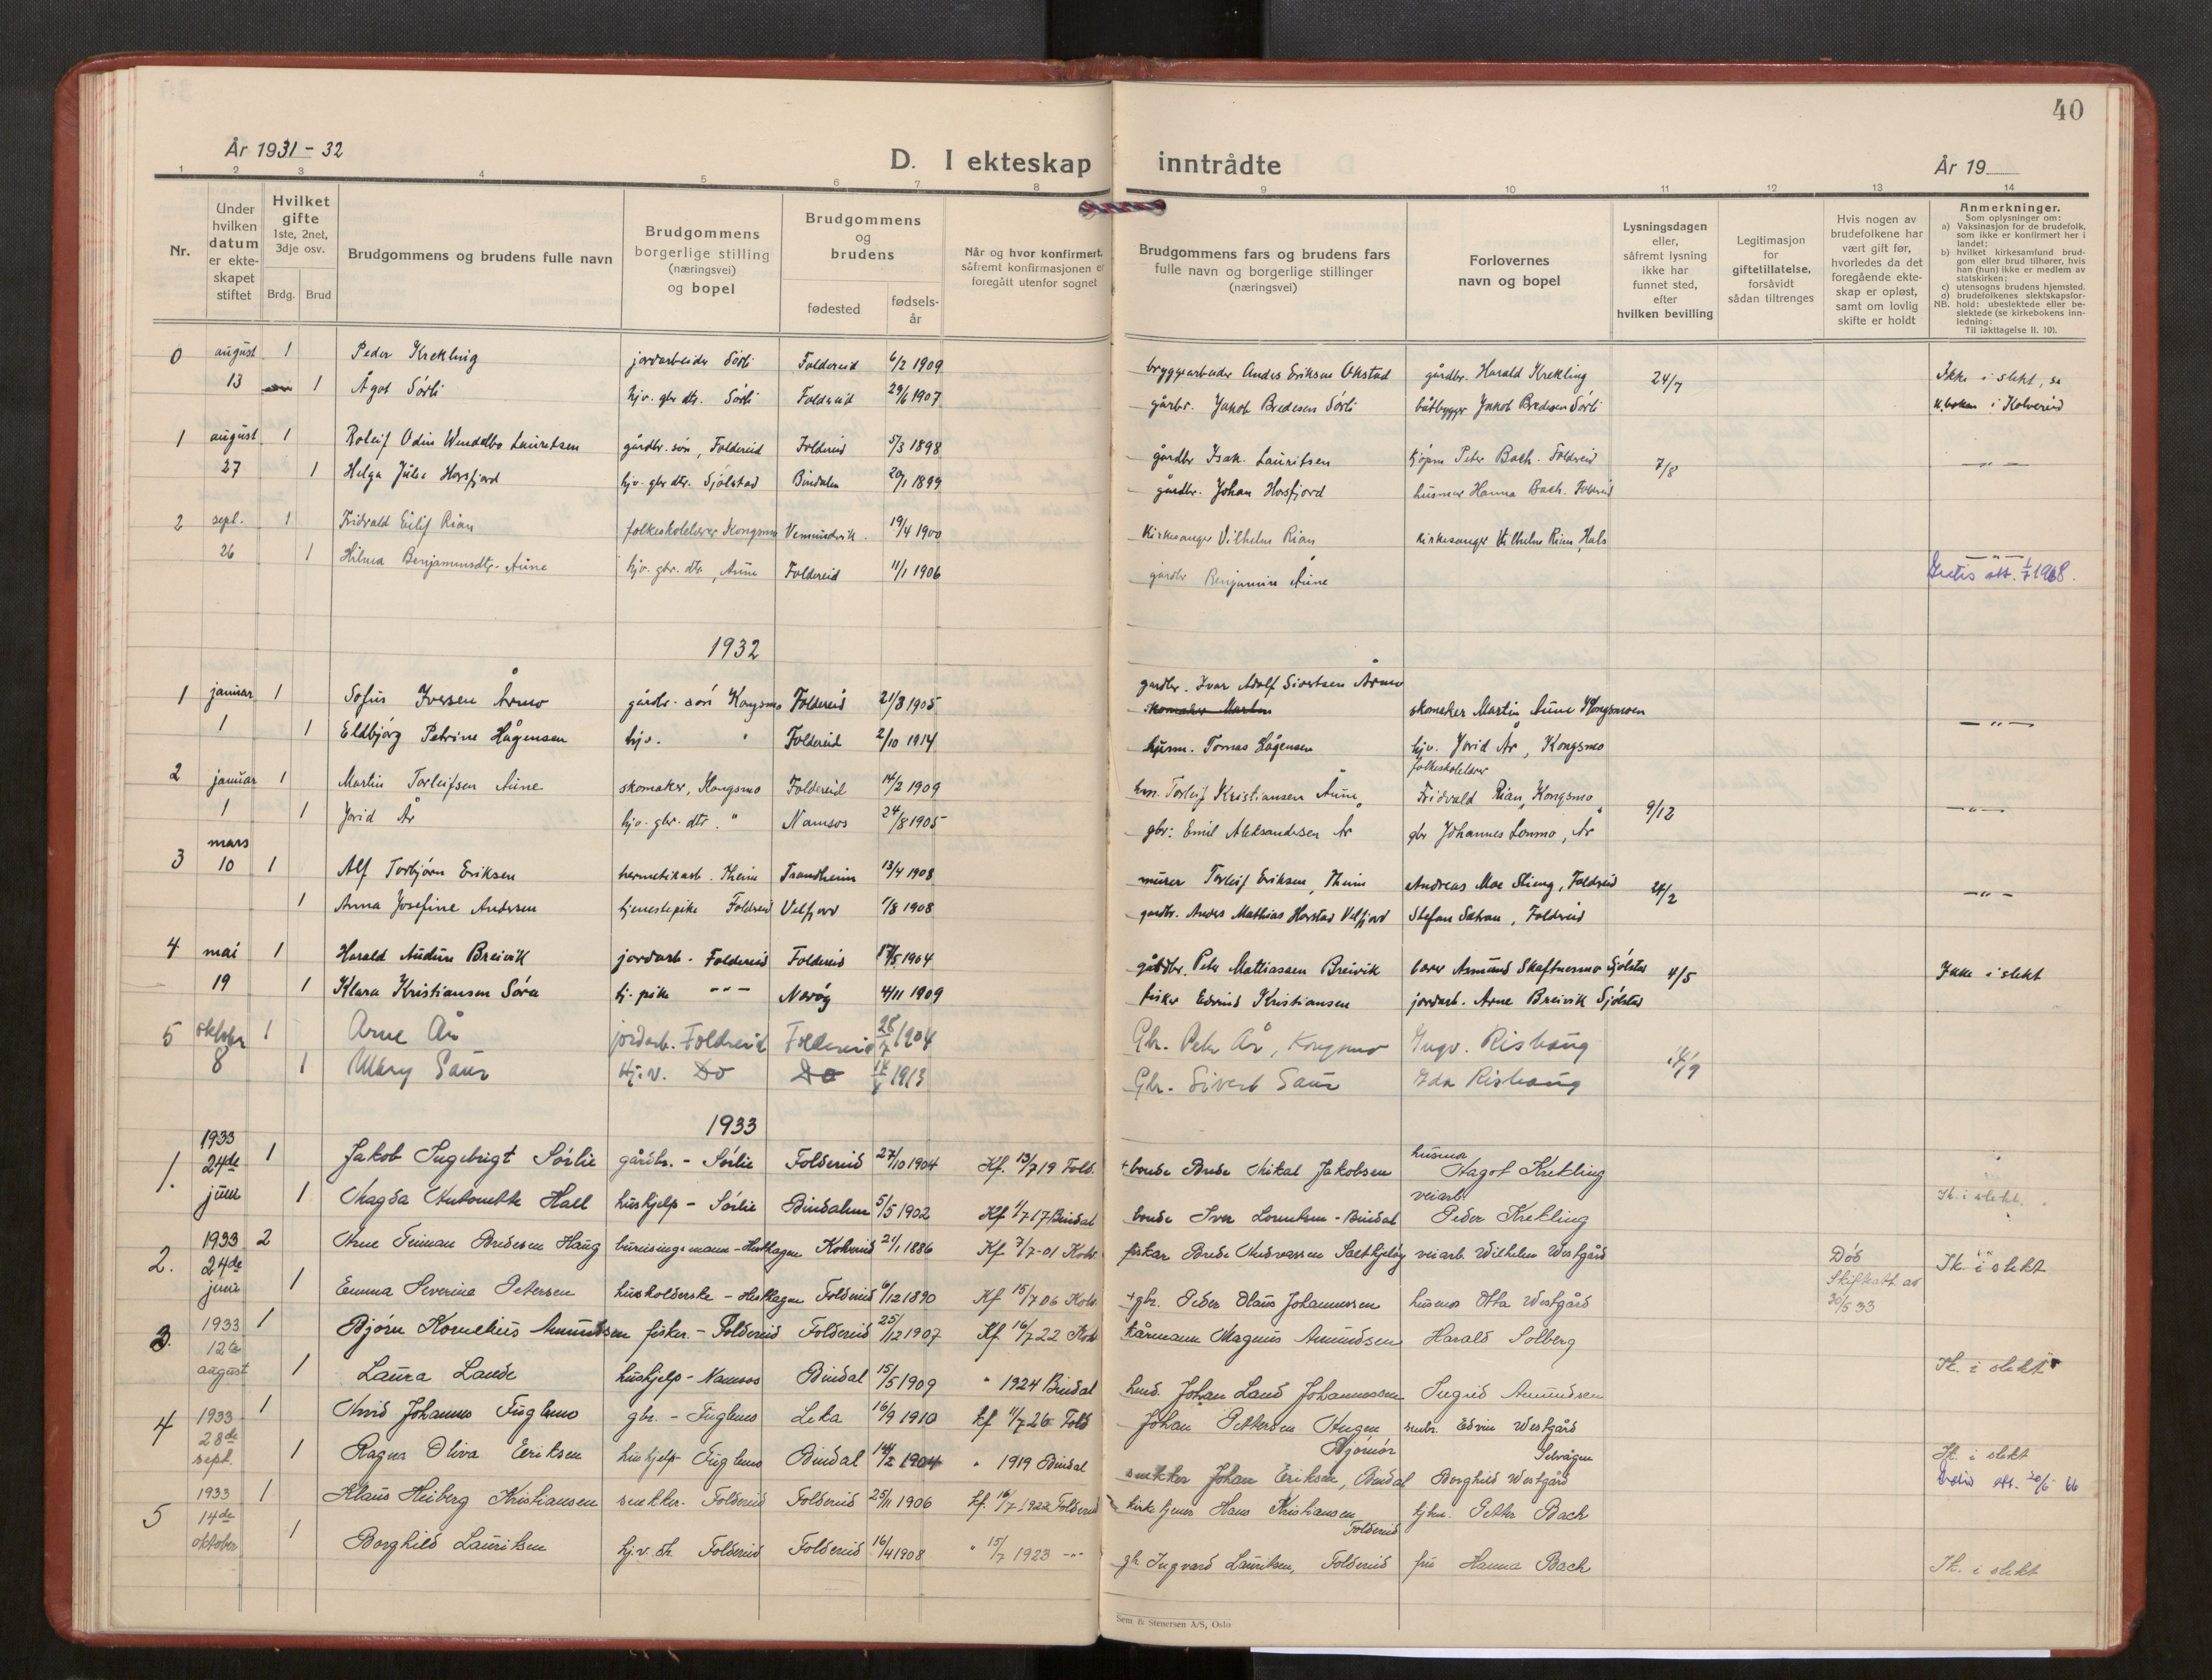 40
År 1931 - 32
D. I ekteskap inntrådte
År 19
1 2 3 4 5 6 7 8 9 10 11 12 13 14
Nr.
Under hvilken datum er ekte-skapet stiftet
Hvilket gifte 1ste, 2net, 3dje osv.
Brdg. Brud
Brudgommens og brudens fulle navn
Brudgommens borgerlige stilling (næringsvei) og bopel
Brudgommens og brudens
fødested
fødsels-år
Når og hvor konfirmert, såfremt konfirmasjonen er foregått utenfor sognet
Brudgommens fars og brudens fars fulle navn og borgerlige stillinger (næringsvei)
Forlovernes navn og bopel
Lysningsdagen eller, såfremt lysning ikke har funnet sted, efter hvilken bevilling
Legitimasjon for giftetillatelse, forsåvidt sådan tiltrenges
Hvis nogen av brudefolkene har vært gift før, hvorledes da det foregående ekte-skap er opløst, samt om lovlig skifte er holdt
Anmerkninger.
Som oplysninger om:
a) Vaksinasjon for de brudefolk, som ikke er konfirmert her i landet;
b) hvilket kirkesamfund brud-gom eller brud tilhører, hvis han (hun) ikke er medlem av statskirken;
c) utensogns brudens hjemsted.
d) brudefolkenes slektskapsfor-hold: ubeslektede eller be-slektede (se kirkebokens inn-ledning:
NB.
Til iakttagelse II. 10).
0 august 1 Peder Krekling jordarbeider Sörli Foldereid 6/2 1909 bryggearbeider Anders Eriksen Okstad gårdbr. Harald Krekling 24/7 Ikke i slekt, se
13 1 Ågot Sörli hjv. gbr dtr. Sörli Foldereid 29/6 1907 gårbr. Jakob Bredesen Sörli båtbygger Jakob Bredesen Sörli k.boken i Kolvereid
1 august 1 Roleif Odin Wendelbo Lauritsen gårdbr. sön, Foldereid Foldereid 5/3 1898 gårdbr Isak Lauritsen kjöpm Peter Bach. Foldreid 7/8 — " —
27 1 Helga Julie Horsfjord hjv. gbr dtr. Sjölstad Bindalen 20/1 1899 gårdbr. Johan Horsfjord husmor Hanna Bach. Foldreid
2 sept. 1 Fridvald Eilif Rian folkeskolelærer Kongsmo Vemundvik 19/4 1900 Kirkesanger Vilhelm Rian Kirkesanger Vilhelm Rian, Hals — " —
26 1 Hilma Benjaminsdtr. Aune hjv. gbr. dtr, Aune Foldereid 11/1 1906 gårdbr Benjamin Aune Gratis att. 1/7 1968.
1932
gardbr. Ivar Adolf Sivertsen Årmo
1 januar 1 Sofus Iversen Årmo gårdbr. sön Kongsmo Foldereid 21/8 1905 skomaker Martin skomaker Martin Aune Kongsmoen — " —
1 1 Eldbjörg Petrine Hågensen hjv. " Foldereid 2/10 1914 husm. Tomas Hågensen hjv. Jorid År, Kongsmo
folkeskolelærer
2 januar 1 Martin Torleifsen Aune skomaker, Kongsmo Foldereid 14/2 1909 hm. Torleif Kristiansen Aune Fridvald Rian, Kongsmo 9/12 — " —
1 1 Jorid År hjv. gbr. dtr. " Namsos 24/8 1905 gbr: Emil Aleksandersen År gbr Johannes Lonmo, År
3 mars 10 1 Alf Torbjörn Eriksen hermetikarb. Theim Trondheim 13/4 1908 murer Torleif Eriksen, Theim Andreas Moe Skeng, Foldreid 24/2 — " —
1 Anna Josefine Andersen tjenestepike Foldreid Velfjord 7/8 1908 gardbr. Anders Mathias Horstad Velfjord Stefan Satran, Foldreid
4 mai 1 Harald Audun Breivik jordarb. Foldereid Foldereid 17/5 1904 gårdbr. Peter Mattiassen Breivik lærer Asmund Skaftnesmo Sjölstad 4/5 Ikke i slekt
19 1 Klara Kristiansen Söra tj. pike — " — Neröy 4/11 1909 fisker Edvind Kristiansen jordarb. Arne Breivik Sjölstad
5 oktober 1 Arne År jordarb. Foldreid Foldereid 28/7 1904 Gbr. Peter År, Kongsmo Ingv. Rishaug
8 1 Mary Saur Hj.v. Do Do 1913 Gbr. Sivert Saur Ida Rishaug
1933
1. 1933 24de juni 1 Jakob Ingebrigt Sörlie gårdbr. - Sörlie Foldereid 27/10 1904 Kf. 13/7 19 Fold. + bonde Brede Mikal Jakobsen husmor Aagot Krekling
1 Magda Antonette Hall huskjelp - Sörlie Bindalen 5/5 1902 Kf 1/7 17 Bindal bonde Iver Lorentsen - Bindal veiarb. Peder Krekling Ik. i slekt.
2. 1933 24de juni 2 Arne Teiman Bredesen Haug bureisingsmann - Hesthagen Kolvereid 21/1 1886 Kf 7/7-01 Kolv. fiskar Brede Andreassen Saltkjeløy veiarb. Wilhelm Westgård Död Skifteatt av 30/5 33 Ik. i slekt
1 Emma Severine Petersen husholderske - Hesthagen Foldereid 6/12 1890 Kf 15/7 06 Kolv. + gbr. Peder Olaus Johannessen husmor Otta Westgård
3. 1933 12te august 1 Björn Kornelius Amundsen fisker. - Foldereid Foldereid 25/12 1907 Kf 16/7 22 Kolv kårmann Magnus Amundsen Harald Solberg
1 Laura Lande huskjelp - Namsos Bindal 15/5 1909 " 1924 Bindal Johan Land Johannessen Ingrid Amundsen Ik. i slekt
4 1933 28de sept. 1 Arvid Johannes Fuglemo gbr. - Fuglemo Leka 16/9 1910 kf 11/7 26 Fold Johan Pettersen Haugen småbr. Edvin Westgård
1 Ragna Oliva Eriksen huskjelp Fuglemo Bindal 14/2 1904 " 1919 Bindal snekker Johan Eriksen, Bindal Borghild Westgård Ik. i slekt
Gratis att. 20/6 66
5 1933 14de oktober 1 Klaus Heiberg Kristiansen snekker. Foldereid Foldereid 25/11 1906 kf. 16/7 1922 Foldereid kirketjener Hans Kristiansen Foldereid kjhm. Petter Bach
1 Borghild Lauritsen hj.v. dtr. Foldereid Foldereid 16/4 1908 " 15/7 1923 — " — gbr Ingvard Lauritsen, Foldereid fru Hanna Bach Ik. i slekt
Sem & Stenersen A/S, Oslo